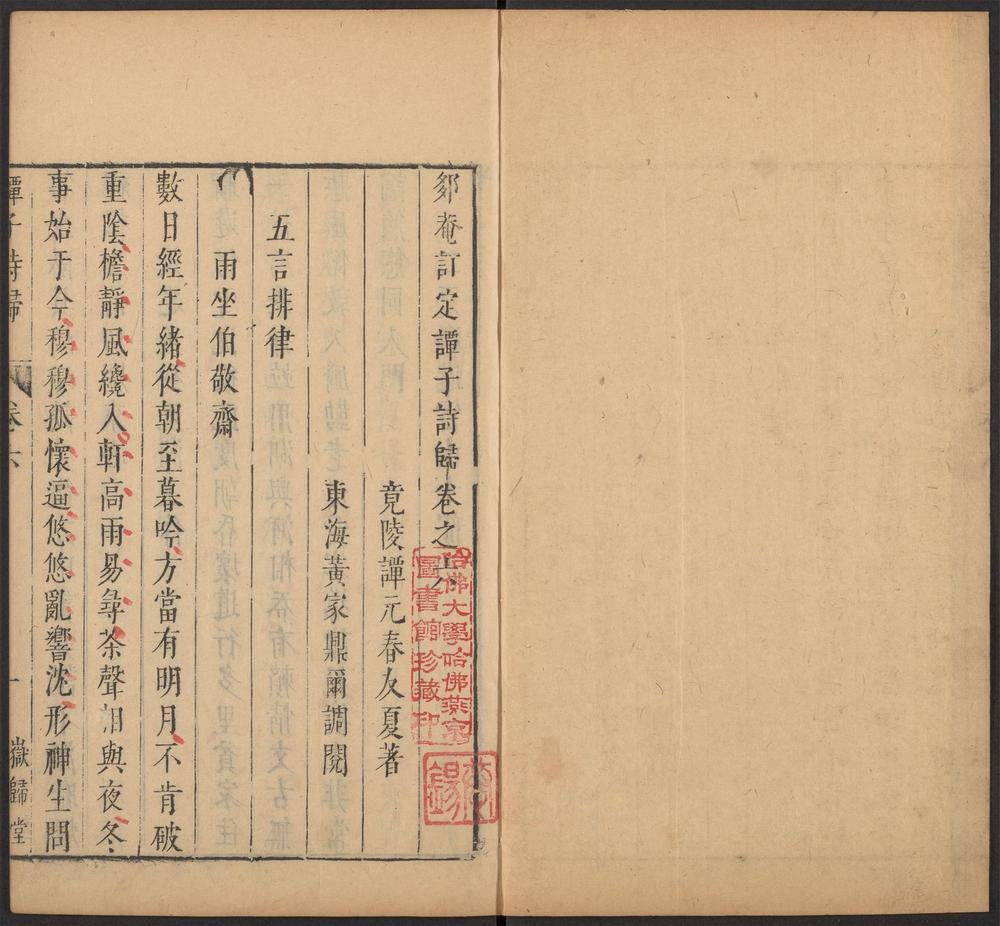 郊菴訂定譚子詩歸卷之六
竟陵譚元春友夏著
東海黃家鼎爾調閱
五言排律
雨坐伯敬齋
數日經年緒從朝至暮吟方當有明月不肯破
重陰檐靜風纔入軒高雨易尋茶聲相與夜冬
事始于今穆穆孤懷逼悠悠亂響沈形神生問
譚子詩歸
卷六
一
嶽歸堂
哈佛大學哈佛燕京
圖書館珍藏印